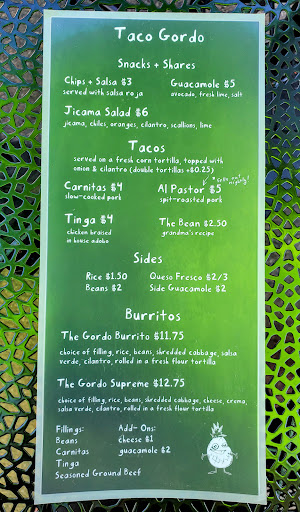 Taco Gordo
Snacks + Shares
Chips + Salsa $3
served with salsa roja
Guacamole $5
avocado, fresh lime, salt
Jicama Salad $6
jicama, chiles, oranges, cilantro, scallions, lime
Tacos
served on a fresh corn tortilla, topped with
onion & cilantro (double tortillas +$0.25)
Carnitas $4
slow-cooked pork
Al Pastor $5
spit-roasted pork
Tinga $4
chicken braised
in house adobo
The Bean $2.50
grandma's recipe
Sides
Rice $1.50
Queso Fresco $2/3
Beans $2
Side Guacamole $2
Burritos
The Gordo Burrito $11.75
choice of filling, rice, beans, shredded cabbage, salsa
verde, cilantro, rolled in a fresh flour tortilla
The Gordo Supreme $12.75
choice of filling, rice, beans, shredded cabbage, cheese, crema,
salsa verde, cilantro, rolled in a fresh flour tortilla
Fillings:
Beans
Carnitas
Tinga
Seasoned Ground Beef
Add-Ons:
cheese $1
guacamole $2